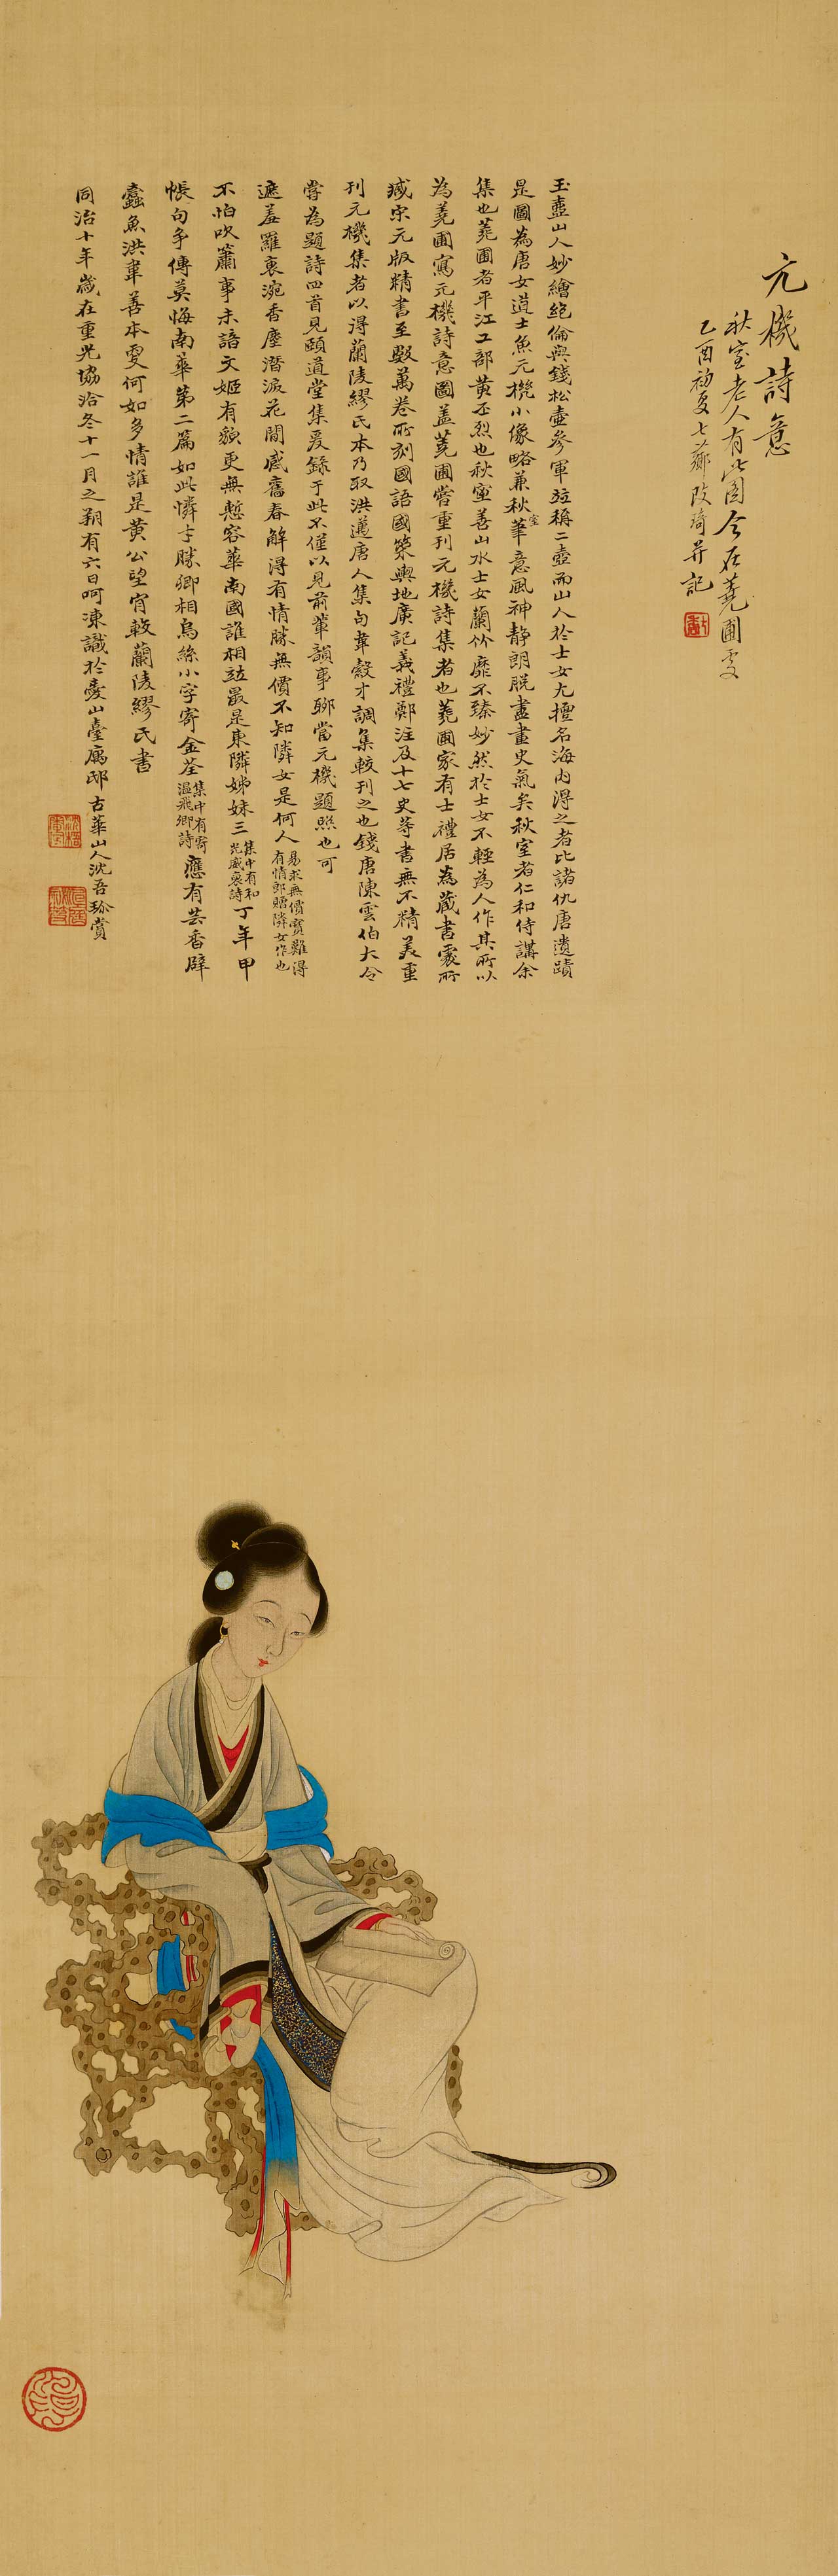 元機詩意
秋室老人有此圖今在蕘圃處
乙酉初夏七薌改琦并記
玉壺山人妙繪絕倫與錢松壺參軍竝稱二壺而山人於士女尤擅名海內得之者比諸仇唐遺蹟
是圖為唐女道士魚元機小像略兼秋室筆意風神靜朗脫盡畫史氣矣秋室者仁和侍講余
集也蕘圃者平江工部黃丕烈也秋室善山水士女蘭竹靡不臻妙然於士女不輕為人作其所以
為蕘圃寫元機詩意圖蓋蕘圃嘗重刊元機詩集者也蕘圃家有士禮居為藏書處所
臧宋元版精書至數萬卷所刻國語國策輿地廣記義禮鄭注及十七史等書無不精美重
刊元機集者以得蘭陵繆氏本乃取洪邁唐人集句韋縠才調集較刊之也錢唐陳雲伯大令
嘗為題詩四首見頤道堂集爰錄于此不僅以見前輩韻事聊當元機題照也可
遮羞羅裏涴香塵潛淚花間感舊春解得有情勝無價不知隣女是何人
易求無價寶難得
有情郎贈隣女作也
不怕吹簫事未諧文姬有貌更無慙容華南國誰相竝最是東隣姊妹三
集中有和
光威裒詩
丁年甲
帳句爭傳莫悔南華第二篇如此憐才勝卿相烏絲小字寄金荃
集中有寄
溫飛卿詩
應有芸香辟
蠹魚洪韋善本更何如多情誰是黃公望宵較蘭陵繆氏書
同治十年歲在重光協洽冬十一月之朔有六日呵凍識於愛山臺寓邸古華山人沈吾珎賞